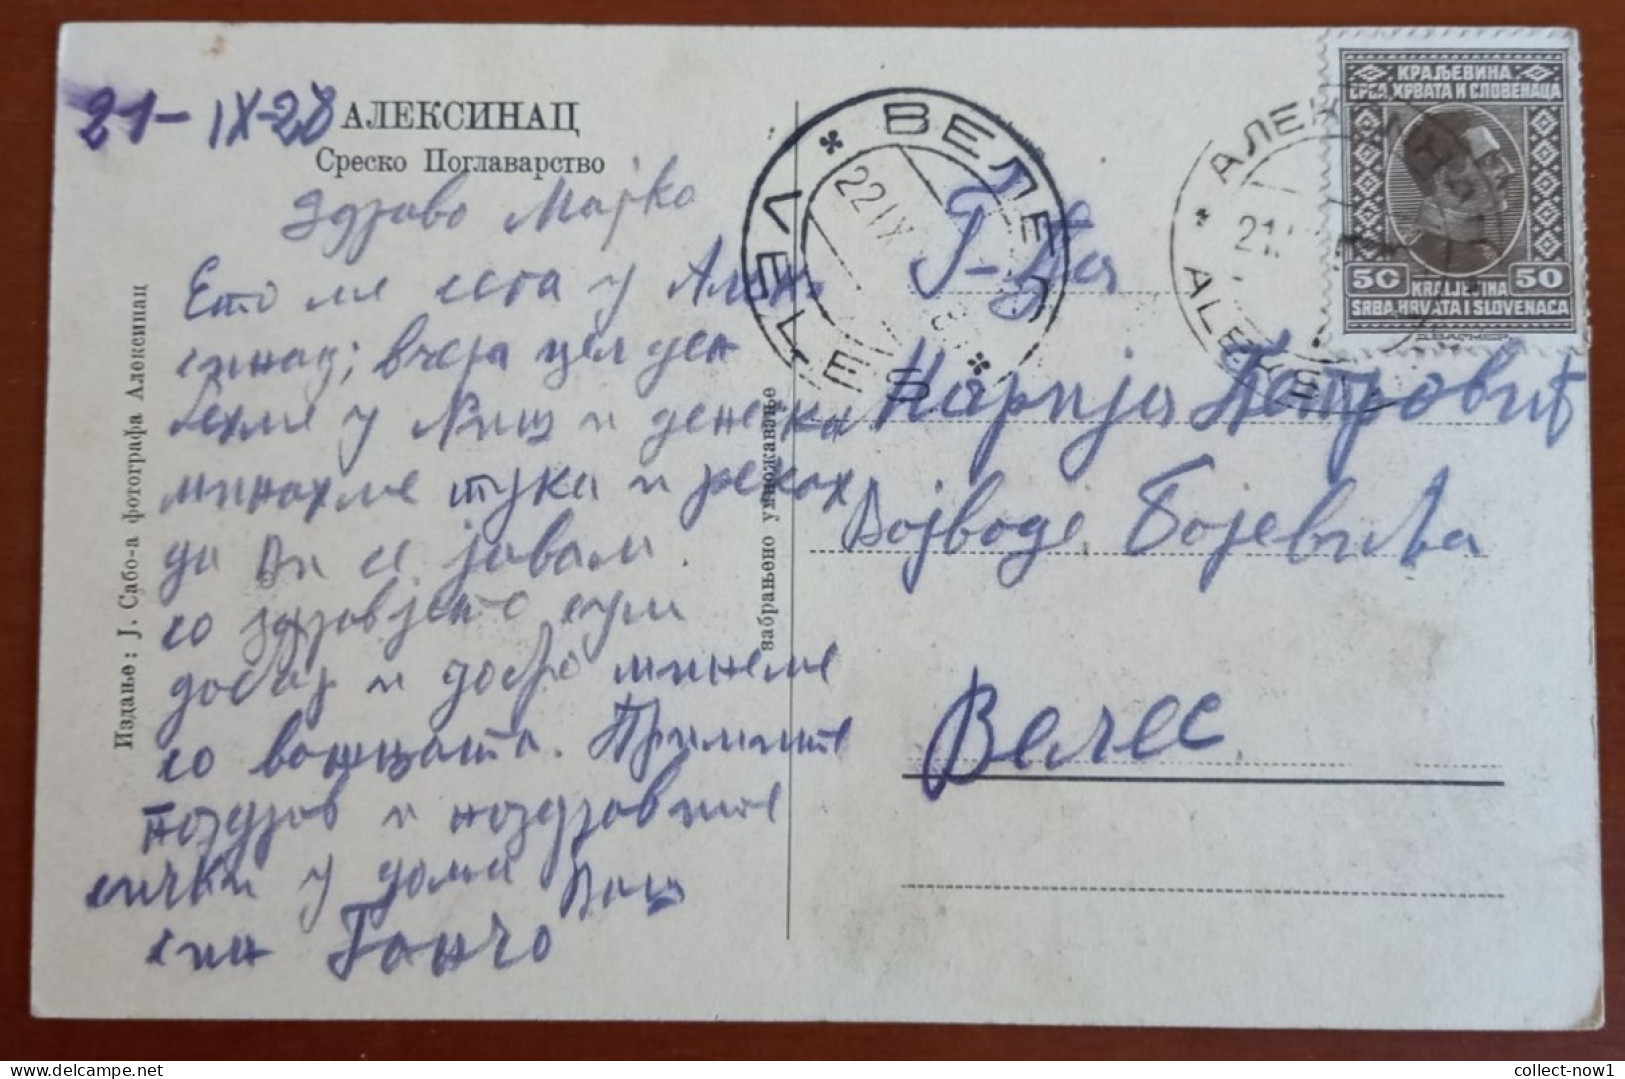 21-IX-28
АЛЕКСИНАЦ
Среско Поглаварство
Здраво Мајко
Ето ме сега у Алек
синац; вчера цел ден
бехме у Ниш и денеска
минахме тука и рекох
да Ви се јавам.
со здравјето сум
добар и добро минеме
со војницата. Примите
поздрав и поздравите
сички у дома Ваш
син Ганчо
Издање: Ј. Сабо-а фотографа Алексинац
забрањено умножавање
ВЕЛЕС
22 IX
VELES
Г-ђа
Марија Петровић
Војводе Бојевића
Велес
АЛЕКСИНАЦ
21
ALEKS
КРАЉЕВИНА
СРБА, ХРВАТА И СЛОВЕНАЦА
50 50
KRALJEVINA
SRBA, HRVATA I SLOVENACA
Д.ВАГНЕР
collect-now1